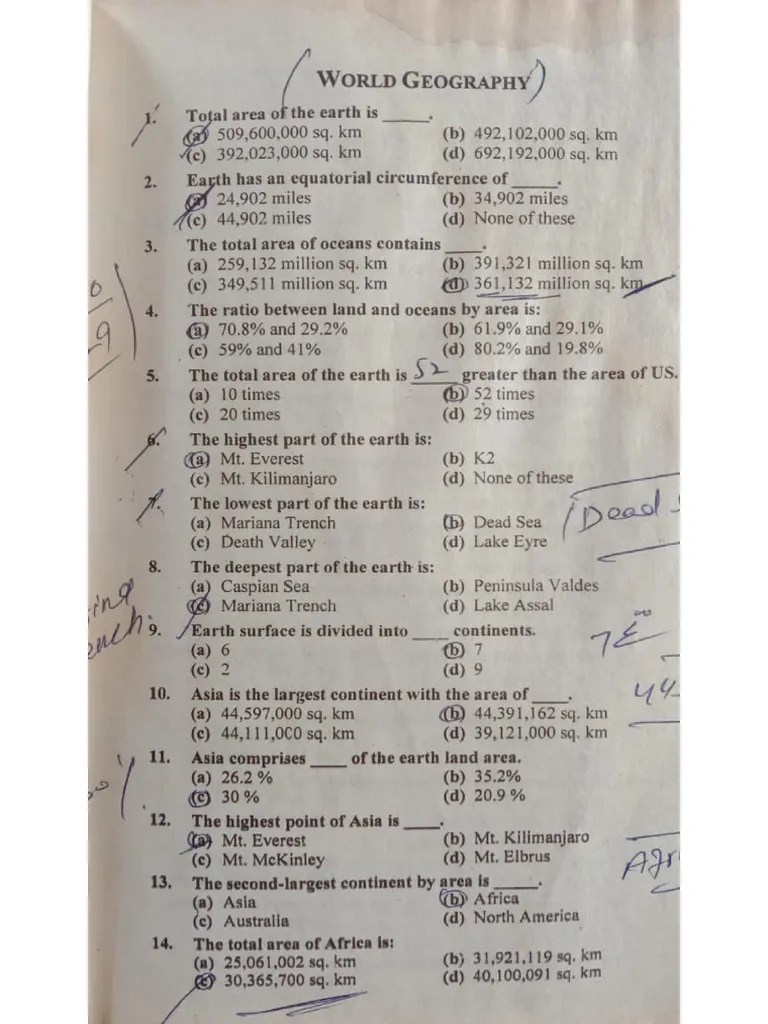 WORLD GEOGRAPHY
1. Total area of the earth is _____.
(a) 509,600,000 sq. km (b) 492,102,000 sq. km
(c) 392,023,000 sq. km (d) 692,192,000 sq. km
2. Earth has an equatorial circumference of _____.
(a) 24,902 miles (b) 34,902 miles
(c) 44,902 miles (d) None of these
3. The total area of oceans contains ____.
(a) 259,132 million sq. km (b) 391,321 million sq. km
(c) 349,511 million sq. km (d) 361,132 million sq. km
4. The ratio between land and oceans by area is:
(a) 70.8% and 29.2% (b) 61.9% and 29.1%
(c) 59% and 41% (d) 80.2% and 19.8%
5. The total area of the earth is 52 greater than the area of US.
(a) 10 times (b) 52 times
(c) 20 times (d) 29 times
6. The highest part of the earth is:
(a) Mt. Everest (b) K2
(c) Mt. Kilimanjaro (d) None of these
7. The lowest part of the earth is:
(a) Mariana Trench (b) Dead Sea
(c) Death Valley (d) Lake Eyre
Dead
8. The deepest part of the earth is:
(a) Caspian Sea (b) Peninsula Valdes
(c) Mariana Trench (d) Lake Assal
9. Earth surface is divided into ____ continents.
(a) 6 (b) 7
(c) 2 (d) 9
10. Asia is the largest continent with the area of ____.
(a) 44,597,000 sq. km (b) 44,391,162 sq. km
(c) 44,111,000 sq. km (d) 39,121,000 sq. km
44
11. Asia comprises ____ of the earth land area.
(a) 26.2 % (b) 35.2%
(c) 30 % (d) 20.9 %
12. The highest point of Asia is ____.
(a) Mt. Everest (b) Mt. Kilimanjaro
(c) Mt. McKinley (d) Mt. Elbrus
13. The second-largest continent by area is _____.
(a) Asia (b) Africa
(c) Australia (d) North America
14. The total area of Africa is:
(a) 25,061,002 sq. km (b) 31,921,119 sq. km
(c) 30,365,700 sq. km (d) 40,100,091 sq. km